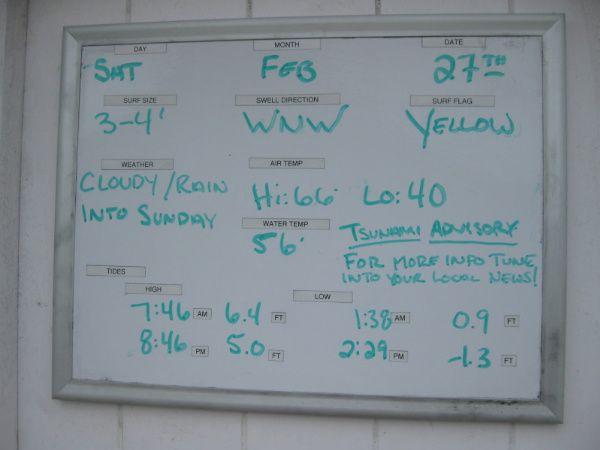 DAY MONTH DATE
SAT FEB 27TH
SURF SIZE SWELL DIRECTION SURF FLAG
3-4' WNW YELLOW
WEATHER AIR TEMP
CLOUDY/RAIN Hi:66° Lo:40
INTO SUNDAY
WATER TEMP
56°
TSUNAMI ADVISORY
FOR MORE INFO TUNE
INTO YOUR LOCAL NEWS!
TIDES
HIGH LOW
7:46 AM 6.4 FT 1:38 AM 0.9 FT
8:46 PM 5.0 FT 2:29 PM -1.3 FT